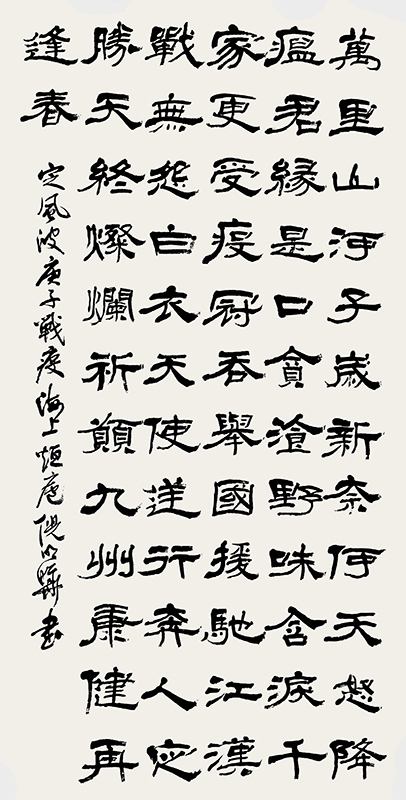 萬里山河子歲新奈何天怒降
瘟君緣是口貪湌野味含淚千
家更受疫冠吞舉國援馳江漢
戰無怨白衣天使逆行奔人定
勝天終燦爛祈願九州康健再
逢春
定風波庚子戰疫海上恒庵倪書